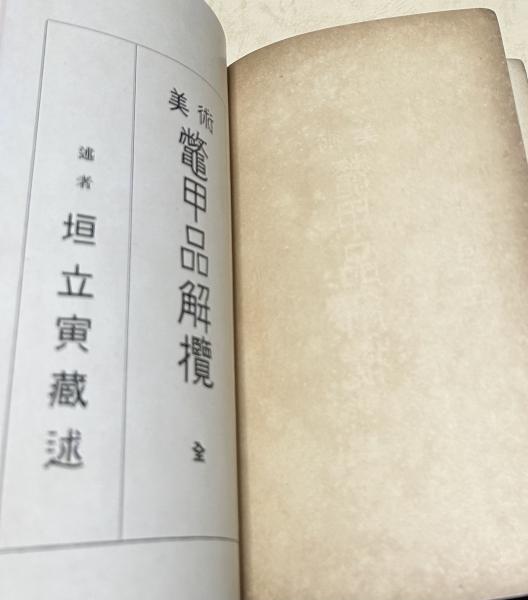 美術
鼈甲品解攬
全
述者
垣立寅蔵述